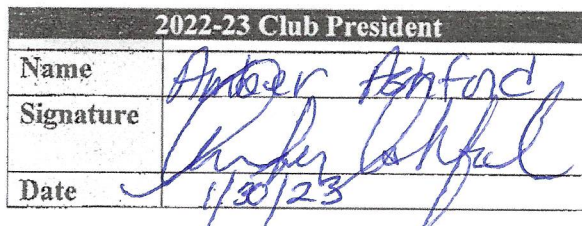 2022-23 Club President
Name Amber Ashford
Signature Amber Ashford
Date 1/30/23